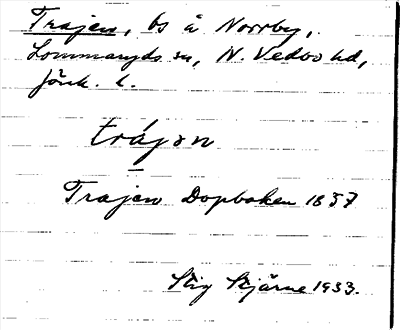 Trajen, bs å Norrby,
Lommaryds sn, N. Vedbo hd,
Jönk. l.
trájɘn
Trajen Dopboken 1857
Stig Stjärne 1933.